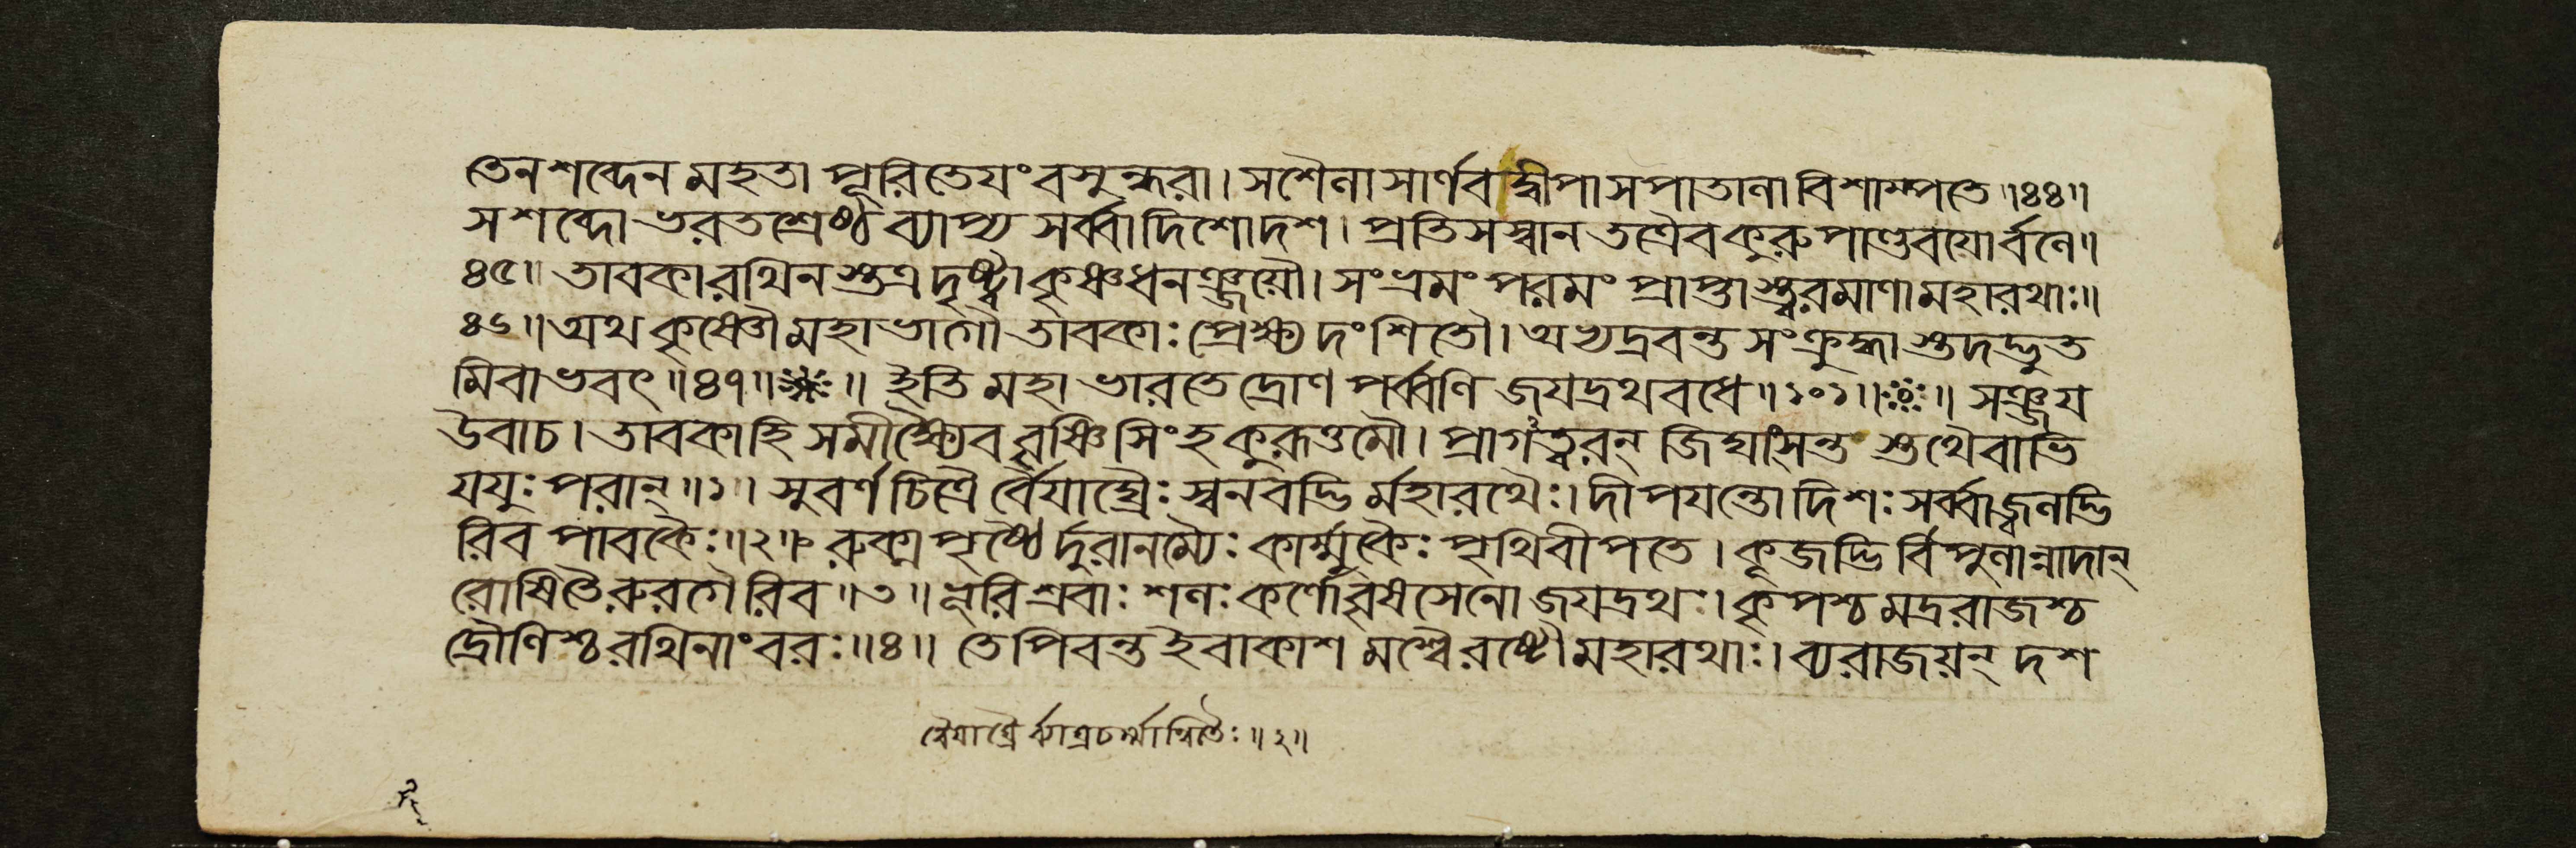 তেন শব্দেন মহতা পূরিতেযং বসুন্ধরা। সশৈলা সার্ণবদ্বীপা সপাতালা বিশাম্পতে॥৪৪॥
স শব্দো ভরতশ্রেষ্ঠ ব্যাপ্য সর্ব্বা দিশো দশ। প্রতিসস্বান তত্রৈব কুরুপাণ্ডবযোর্বলে॥
৪৫॥ তাবকা রথিনস্তত্র দৃষ্ট্বা কৃষ্ণধনঞ্জয়ৌ। সংভ্রমং পরমং প্রাপ্তাস্ত্বরমাণা মহারথাঃ॥
৪৬॥ অথ কৃষ্ণৌ মহাভাগৌ তাবকাঃ প্রেক্ষ্য দংশিতৌ। অভ্যদ্রবন্ত সংক্রুদ্ধাস্তদদ্ভুত
মিবাভবৎ॥৪৭॥ ॥ ইতি মহাভারতে দ্রোণপর্ব্বণি জযদ্রথবধে॥১০১॥ ॥ সঞ্জয
উবাচ। তাবকা হি সমীক্ষ্যৈব বৃষ্ণিসিংহকুরূত্তমৌ। প্রাগত্বরন্ জিঘাংসন্তস্তথৈবাভি
যযুঃ পরান্॥১॥ সুবর্ণচিত্রৈর্বৈযাঘ্রৈঃ স্বনবদ্ভির্মহারথৈঃ। দীপযন্তো দিশঃ সর্ব্বা জ্বলদ্ভি
রিব পাবকৈঃ॥২॥ রুক্মপৃষ্ঠৈর্দুরানম্যৈঃ কার্ম্মুকৈঃ পৃথিবীপতে। কূজদ্ভির্বিপুলান্নাদান্
রোষিতৈরুরগৈরিব॥৩॥ ভূরিশ্রবাঃ শলঃ কর্ণো বৃষসেনো জযদ্রথঃ। কৃপশ্চ মদ্ররাজশ্চ
দ্রৌণিশ্চ রথিনাং বরঃ॥৪॥ তে পিবন্ত ইবাকাশমশ্বৈরষ্টৌ মহারথাঃ। ব্যরাজয়ন্ দশ
বৈযাঘ্রৈর্ব্যাঘ্রচর্ম্মান্বিতৈঃ॥২॥